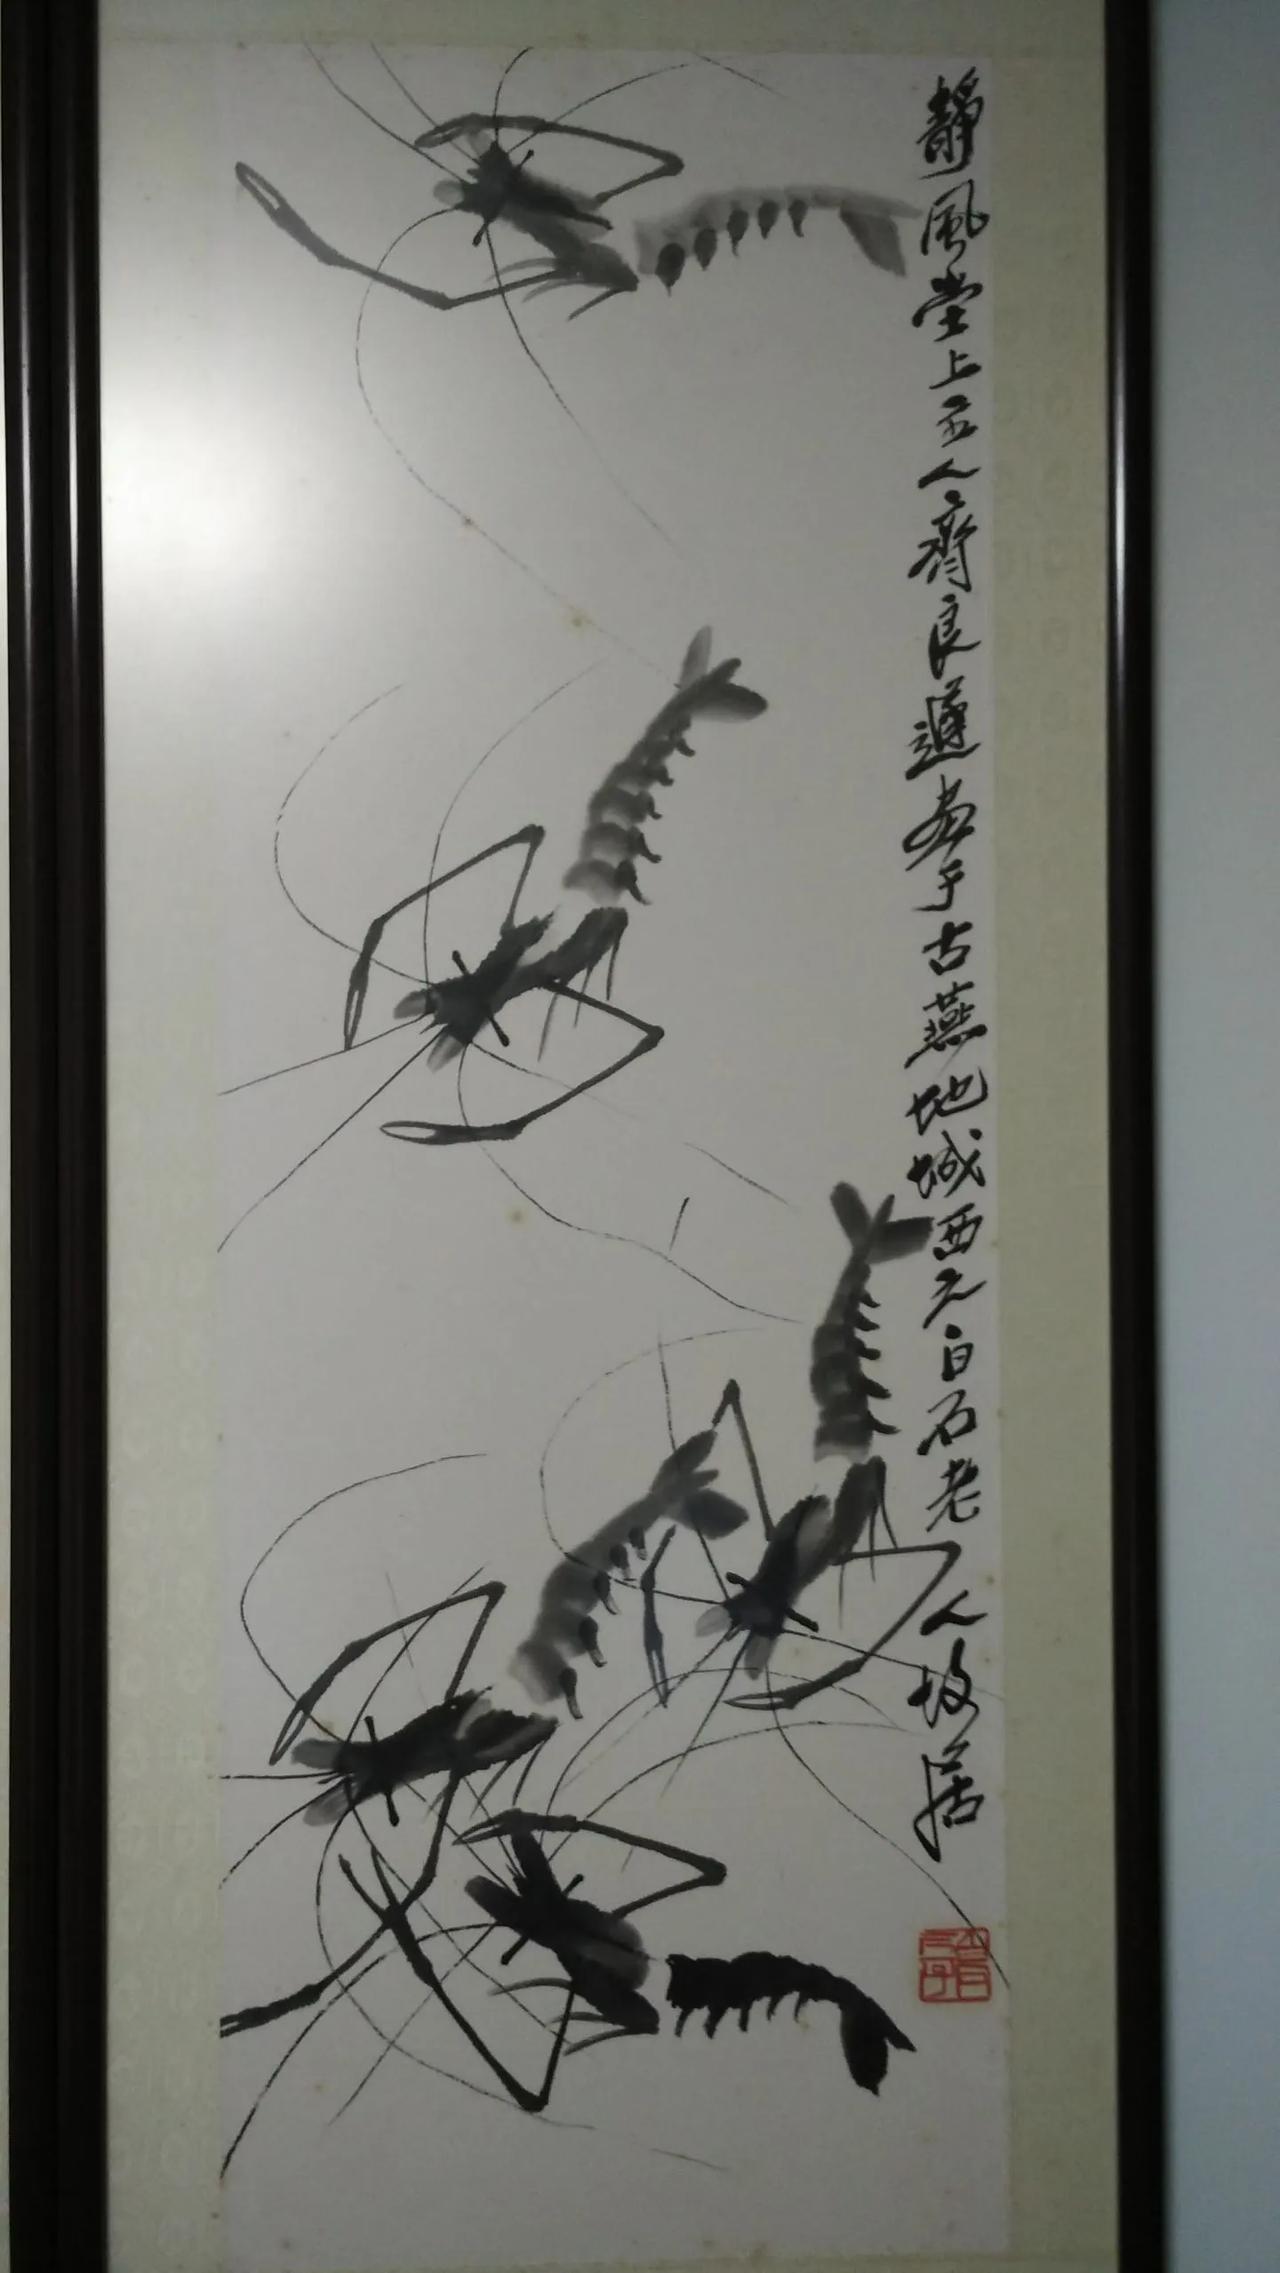 靜風堂上主人齊良遲畫于古燕地城西之白石老人故居